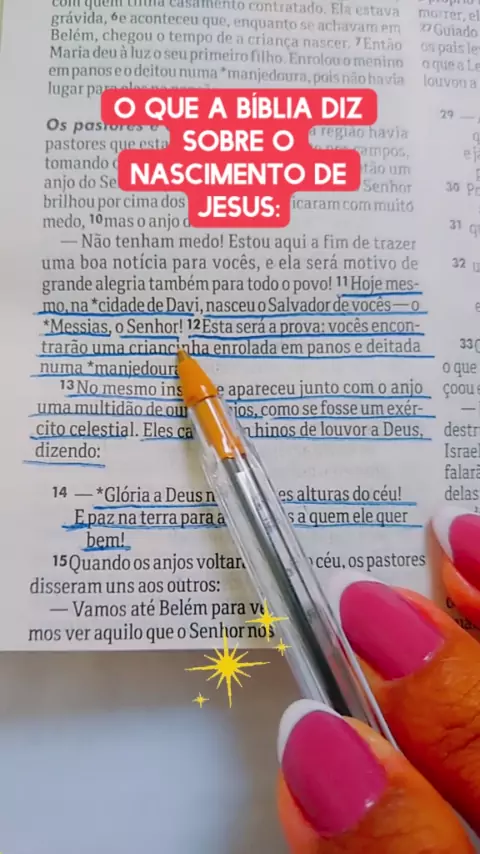 com quem tinha casamento contratado. Ela estava
grávida, 6e aconteceu que, enquanto se achavam em
Belém, chegou o tempo de a criança nascer. 7Então
Maria deu à luz o seu primeiro filho. Enrolou o menino
em panos e o deitou numa *manjedoura, pois não havia
lugar para
O QUE A BÍBLIA DIZ
SOBRE O
NASCIMENTO DE
JESUS:
Os pastores e
a região havia
pastores que esta campos,
tomando um
anjo do Se Senhor
brilhou por cima dos ficaram com muito
medo, 10mas o anjo d
— Não tenham medo! Estou aqui a fim de trazer
uma boa notícia para vocês, e ela será motivo de
grande alegria também para todo o povo! 11Hoje mes-
mo, na *cidade de Davi, nasceu o Salvador de vocês — o
*Messias, o Senhor! 12Esta será a prova: vocês encon-
trarão uma criancinha enrolada em panos e deitada
numa *manjedoura
13No mesmo ins e apareceu junto com o anjo
uma multidão de ou jos, como se fosse um exér-
cito celestial. Eles ca hinos de louvor a Deus,
dizendo:
14 — *Glória a Deus n es alturas do céu!
E paz na terra para a s a quem ele quer
bem!
15Quando os anjos voltar céu, os pastores
disseram uns aos outros:
— Vamos até Belém para ve
mos ver aquilo que o Senhor nos
morrer, el
27Guiado
os pais le
o que a Le
louvou a
29 —
30 P
31 q
32 u
33O
o que
çoou e
destr
Israel
falará
delas